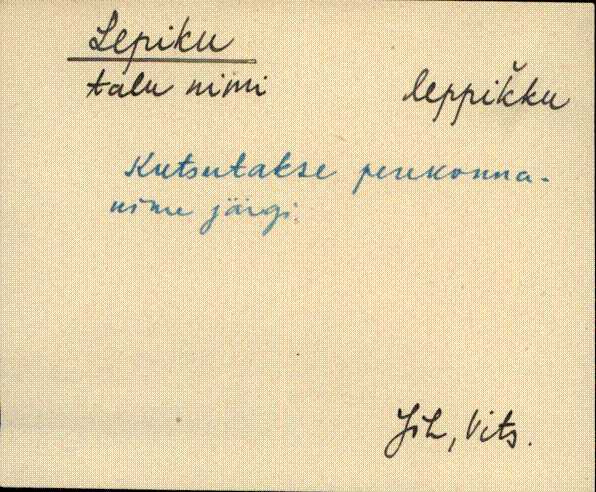 Lepiku
talu nimi leppikku
Kutsutakse perekonna-
nime järgi.
Jõh, Vits.